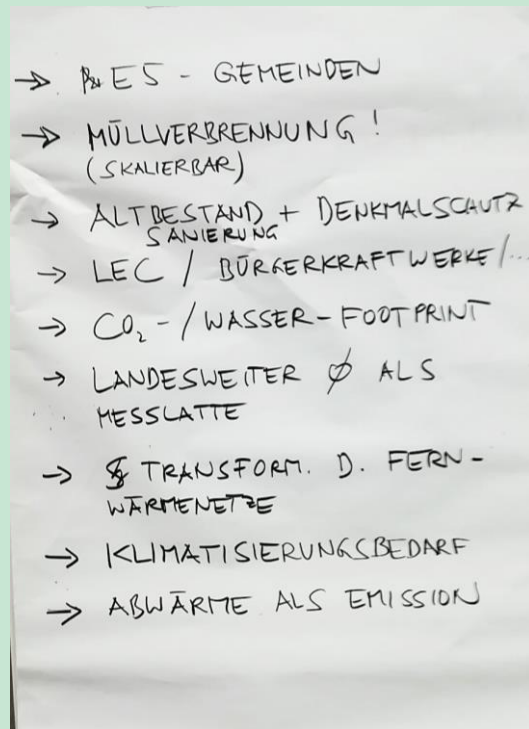 → E5 - GEMEINDEN
→ MÜLLVERBRENNUNG!
(SKALIERBAR)
→ ALTBESTAND + DENKMALSCHUTZ
SANIERUNG
→ LEC / BÜRGERKRAFTWERKE/...
→ CO₂-/WASSER-FOOTPRINT
→ LANDESWEITER Ø ALS
MESSLATTE
→ TRANSFORM. D. FERN-
WÄRMENETZE
→ KLIMATISIERUNGSBEDARF
→ ABWÄRME ALS EMISSION